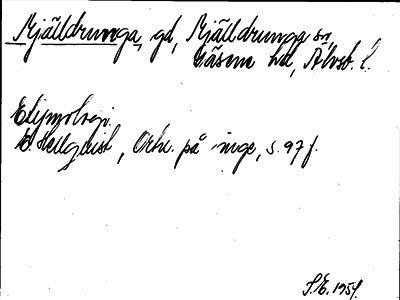 Mjälldrunga, gd, Mjälldrunga sn,
Gäsene hd, Älvsb. l.
Etymologi.
E. Hellquist, Ortn. på -inge, s. 97 f.
S.E. 1954.